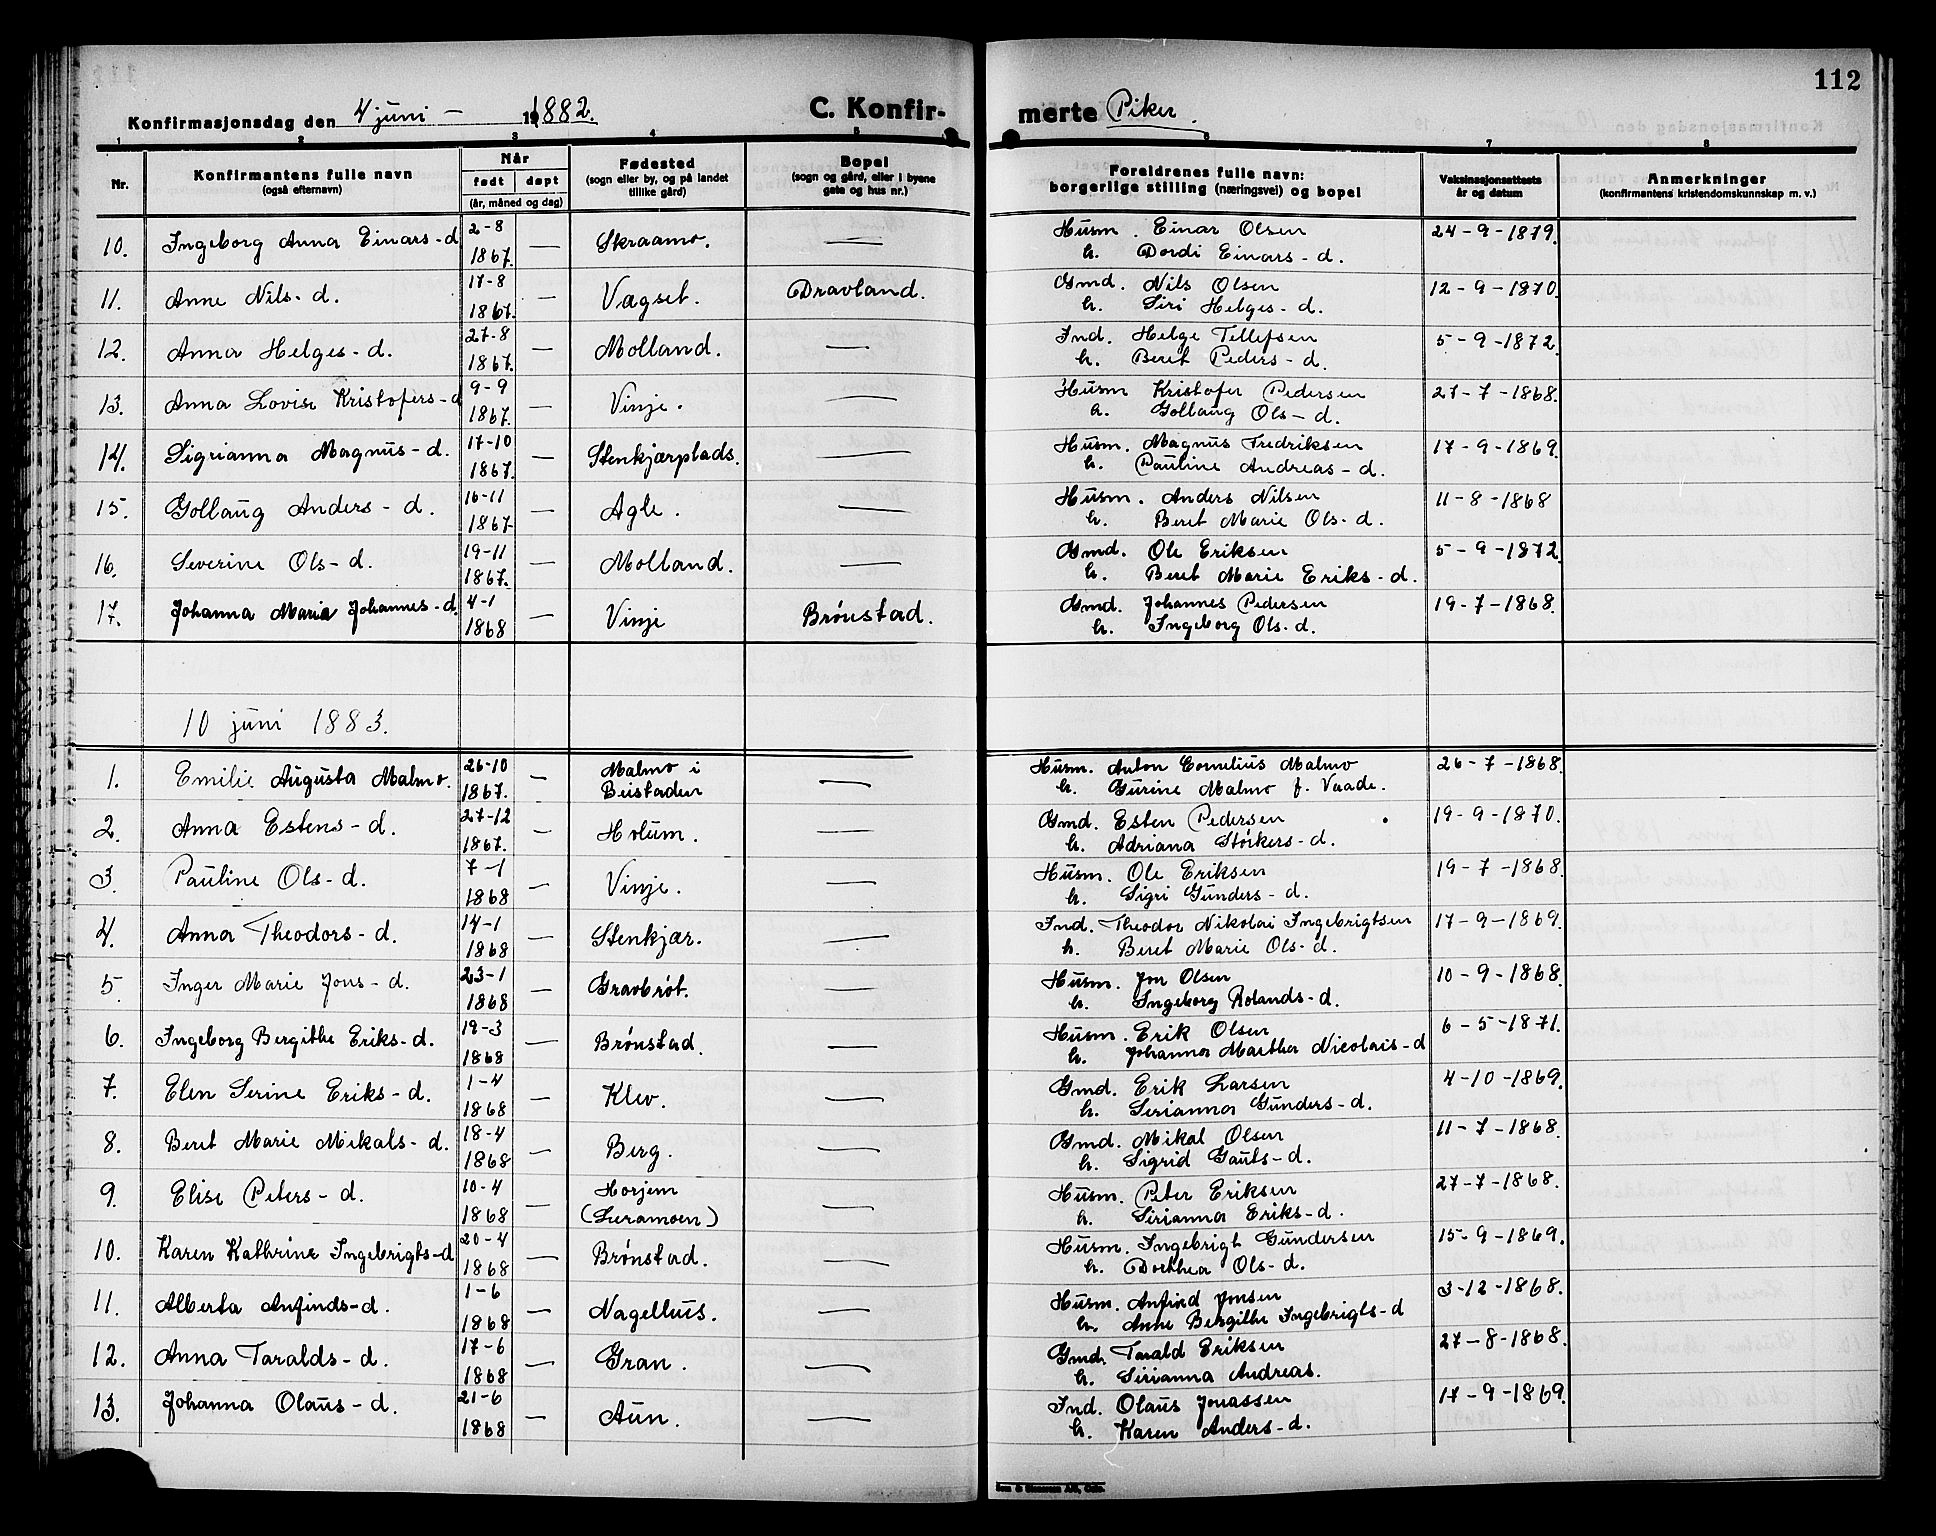 112
Konfirmasjonsdag den 4 juni - 1882. C. Konfir- merte Piker.
1 2 3 4 5 6 7 8
Nr. Konfirmantens fulle navn (også efternavn) Når født døpt (år, måned og dag) Fødested (sogn eller by, og på landet tillike gård) Bopel (sogn og gård, eller i byene gate og hus nr.) Foreldrenes fulle navn: borgerlige stilling (næringsvei) og bopel Vaksinasjonsattests år og datum Anmerkninger (konfirmantens kristendomskunnskap m. v.)
10. Ingeborg Anna Einars-d 2-8 1867. — Skraamo. — Husm. Einar Olsen 24-9-1879.
h. Dordi Einars-d.
11. Anne Nils-d. 17-8 1867. — Vagset. Dravland. Gmd. Nils Olsen 12-9-1870.
h. Siri Helges-d.
12. Anna Helges-d. 27-8 1867. — Molland. — Ind. Helge Tellefsen 5-9-1872.
h. Beret Peders-d.
13. Anna Lovise Kristofers-d 9-9 1867. — Vinje. — Husm Kristofer Pedersen 27-7-1868.
h. Gollaug Ols-d.
14. Sigrianna Magnus-d. 17-10 1867. — Stenkjærplads. — Husm. Magnus Fredriksen 17-9-1869.
h. Pauline Andreas-d.
15. Gollaug Anders-d. 16-11 1867. — Agle. — Husm. Anders Nilsen 11-8-1868
h. Beret Marie Ols-d.
16. Severine Ols-d. 19-11 1867. — Molland. — Gmd. Ole Eriksen 5-9-1872.
h. Beret Marie Eriks-d.
17. Johanna Maria Johannes-d. 4-1 1868 — Vinje Brønstad. Gmd. Johannes Pedersen 19-7-1868.
h. Ingeborg Ols-d.
10 juni 1883.
1. Emilie Augusta Malmo. 26-10 1867. — Malmo i Beistaden — Husm. Anton Cornelius Malmo 26-7-1868.
h. Gurine Malmo f. Vaade.
2. Anna Estens-d. 27-12 1867. — Holum. — Gmd. Esten Pedersen 19-9-1870.
h. Adriana Størkers-d.
3. Pauline Ols-d. 7-1 1868 — Vinje. — Husm. Ole Eriksen 19-7-1868.
h. Sigri Gunders-d.
4. Anna Theodors-d. 14-1 1868 — Stenkjær. — Ind. Theodor Nikolai Ingebrigtsen 17-9-1869.
h. Beret Marie Ols-d.
5. Inger Marie Jons-d. 23-1 1868 — Gravbrøt. — Husm. Jon Olsen 10-9-1868.
h. Ingeborg Rolands-d.
6. Ingeborg Bergithe Eriks-d. 19-3 1868 — Brønstad. — Husm. Erik Olsen 6-5-1871.
h. Johanna Marthea Nicolais-d
7. Elen Serine Eriks-d. 1-4 1868 — Klev. — Gmd. Erik Larsen 4-10-1869.
h. Serianna Gunders-d.
8. Beret Marie Mikals-d. 18-4 1868 — Berg. — Gmd. Mikal Olsen 11-7-1868.
h. Sigrid Gauts-d.
9. Elise Peters-d. 10-4 1868 — Horjem (Leramoen) — Husm. Peter Eriksen 27-7-1868.
h. Sirianna Eriks-d.
10. Karen Kathrine Ingebrigts-d 20-4 1868 — Brønstad. — Husm. Ingebrigt Gundersen 15-9-1869.
h. Dorthea Ols-d.
11. Alberta Anfinds-d. 1-6 1868 — Nagelhus. — Husm. Anfind Jonsen 3-12-1868.
h. Anne Bergithe Ingebrigts-d
12. Anna Taralds-d. 17-6 1868 — Gran. — Gmd. Tarald Eriksen 27-8-1868.
h. Sirianna Andreas.
13. Johanna Olaus-d. 21-6 1868 — Aun. — Ind. Olaus Jonassen 17-9-1869.
h. Karen Anders-d.